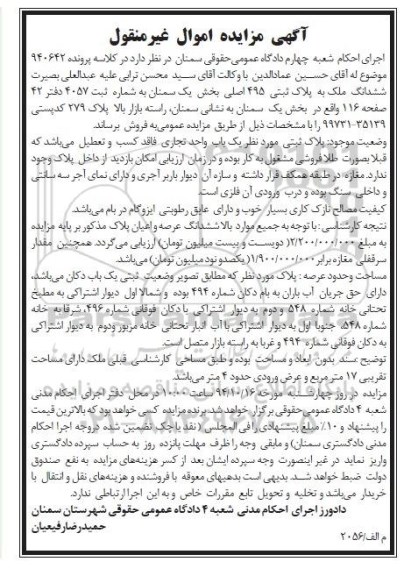 آگهی مزایده اموال غیرمنقول
اجرای احکام شعبه چهارم دادگاه عمومی حقوقی سمنان در نظر دارد در کلاسه پرونده ۹۴۰۶۴۲
موضوع له آقای حسین عمادالدین با وکالت آقای سید محسن ترابی علیه عبدالعلی بصیرت
ششدانگ ملک به پلاک ثبتی ۴۹۵ اصلی بخش یک سمنان به شماره ثبت ۴۰۵۷ دفتر ۴۲
صفحه ۱۱۶ واقع در بخش یک سمنان به نشانی سمنان، راسته بازار بالا پلاک ۲۷۹ کدپستی
۳۵۱۳۹-۹۹۷۳۱ را با مشخصات ذیل از طریق مزایده عمومی به فروش برساند.
وضعیت موجود: پلاک ثبتی مورد نظر یک باب واحد تجاری فاقد کسب و تعطیل می‌باشد که
قبلا بصورت طلا فروشی مشغول به کار بوده و در زمان ارزیابی امکان بازدید از داخل پلاک وجود
ندارد. مغازه در طبقه همکف قرار داشته و سازه آن دیوار باربر آجری و دارای نمای آجر سه سانتی
و داخلی سنگ بوده و درب ورودی آن فلزی است.
کیفیت مصالح نازک کاری بسیار خوب و دارای عایق رطوبتی ایزوگام در بام می‌باشد.
نتیجه کارشناسی: با توجه به جمیع موارد بالا ششدانگ عرصه و اعیان پلاک مذکور بر پایه مزایده
به مبلغ ۲/۲۰۰/۰۰۰/۰۰۰ (دویست و بیست میلیون تومان) ارزیابی می‌گردد. همچنین مقدار
سرقفلی مغازه برابر ۱/۹۰۰/۰۰۰/۰۰۰ (یکصد و نود میلیون تومان) می‌باشد.
مساحت وحدود عرصه: پلاک مورد نظر که مطابق تصویر وضعیت ثبتی یک باب دکان می‌باشد،
دارای حق جریان آب باران به بام دکان شماره ۴۹۴ بوده و شمالا اول دیوار اشتراکی به مطبخ
تحتانی خانه شماره ۵۴۸ و دوم به دیوار اشتراکی با دکان فوقانی شماره ۴۹۶، شرقا به خانه
شماره ۵۴۸، جنوبا اول به دیوار اشتراکی با آب انبار تحتانی خانه مزبور و دوم به دیوار اشتراکی
به دکان فوقانی شماره ۴۹۴ و غربا به راسته بازار متصل است.
توضیح: سند بدون ابعاد و مساحت بوده و طبق مساحی کارشناسی قبلی ملک دارای مساحت
تقریبی ۱۷ متر مربع و عرض ورودی حدود ۴ متر می‌باشد.
مزایده در روز چهارشنبه مورخه ۹۴/۱۰/۱۶ ساعت ۱۰:۰۰ در محل دفتر اجرای احکام مدنی
شعبه ۴ دادگاه عمومی حقوقی برگزار خواهد شد. برنده مزایده کسی خواهد بود که بالاترین قیمت
را پیشنهاد و ۱۰٪ مبلغ پیشنهادی را فی المجلس (نقد یا چک تضمین شده در وجه اجرا احکام
مدنی دادگستری سمنان) و مابقی وجه را ظرف مهلت پانزده روز به حساب سپرده دادگستری
واریز نماید. در غیر اینصورت وجه سپرده ایشان بعد از کسر هزینه‌های مزایده به نفع صندوق
دولت ضبط خواهد شد. بدیهی است بدهیهای معوقه با فروشنده و هزینه‌های نقل و انتقال با
خریدار می‌باشد و تخلیه و تحویل تابع مقررات خاص و به این اجرا ارتباطی ندارد.
دادورز اجرای احکام مدنی شعبه ۴ دادگاه عمومی حقوقی شهرستان سمنان
حمیدرضا رفیعیان
م الف/۲۰۵۶